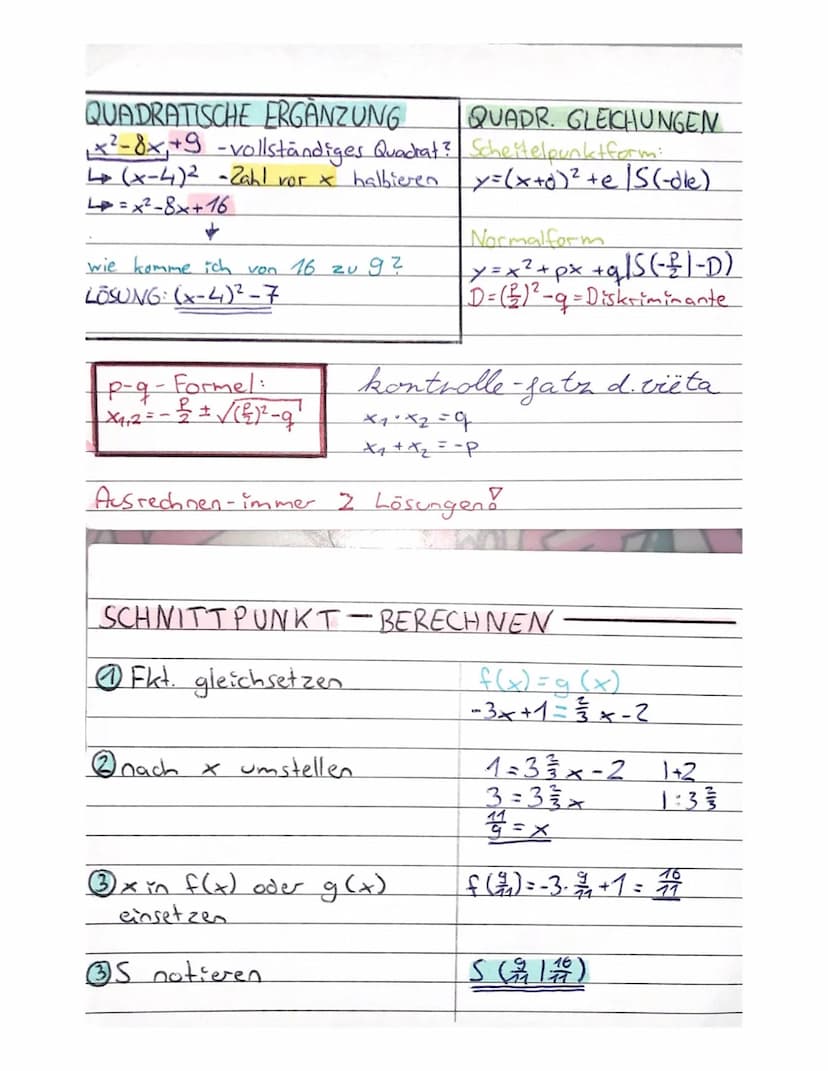 QUADRATISCHE ERGÄNZUNG
x²-8x+9 - vollständiges Quadrat?
↳ (x-4)² - Zahl vor x halbieren
↳ = x²-8x+16
↓
wie komme ich von 16 zu 9?
LÖSUNG: (x-4)²-7
QUADR. GLEICHUNGEN
Scheitelpunktform:
y=(x+d)²+e | S(-d|e)
Normalform
y=x²+px+q | S(-p/2|-D)
D=(p/2)²-q = Diskriminante
p-q-Formel:
x1,2 = -p/2 ± √((p/2)²-q)
kontrolle-satz d. viëta
x₁·x₂ = q
x₁+x₂ = -p
Ausrechnen-immer 2 Lösungen!
SCHNITTPUNKT-BERECHNEN
① Fkt. gleichsetzen
f(x)=g(x)
-3x+1=2/3 x-2
② nach x umstellen
1=3 2/3 x-2 |+2
3=3 2/3 x |:3 2/3
11/9 = x
③ x in f(x) oder g(x)
einsetzen
f(9/11)=-3·9/11+1= 16/11
③ S notieren
S (9/11 | 16/11)